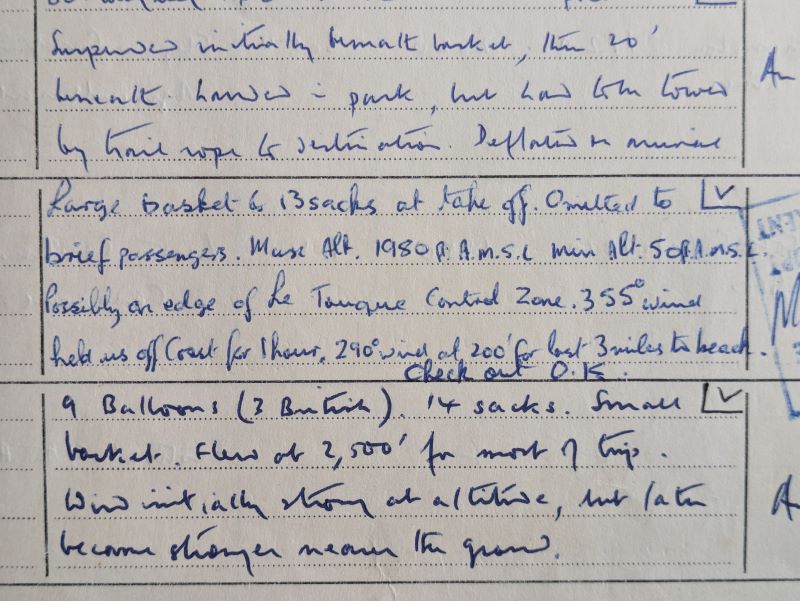 Suspended initially beneath basket, then 20'
beneath. Landed in park, but had to be towed
by trail rope to destination. Deflated on arrival
An
Large Basket & 13 sacks at take off. Omitted to
brief passengers. Max Alt. 1980 ft A.M.S.L Min Alt. 50ft A.M.S.L.
Possibly on edge of Le Touque Control Zone. 355° wind
held us off Coast for 1 hour. 290° wind at 200' for last 3 miles to beach.
Check out O.K.
9 Balloons (3 British). 14 sacks. Small
basket. Flew at 2,500' for most of trip.
Wind initially strong at altitude, but later
become stronger nearer the ground.